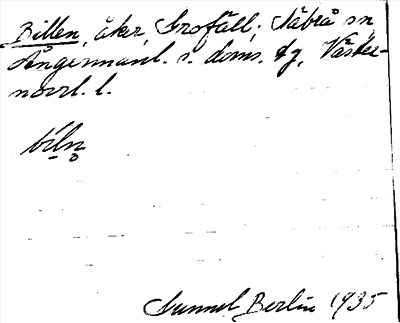 Billen, åker, Frofäll, Säbrå sn
Ångermanl. s. doms. tg, Väster-
norrl. l.
biln̥
Gunnel Berlin 1935